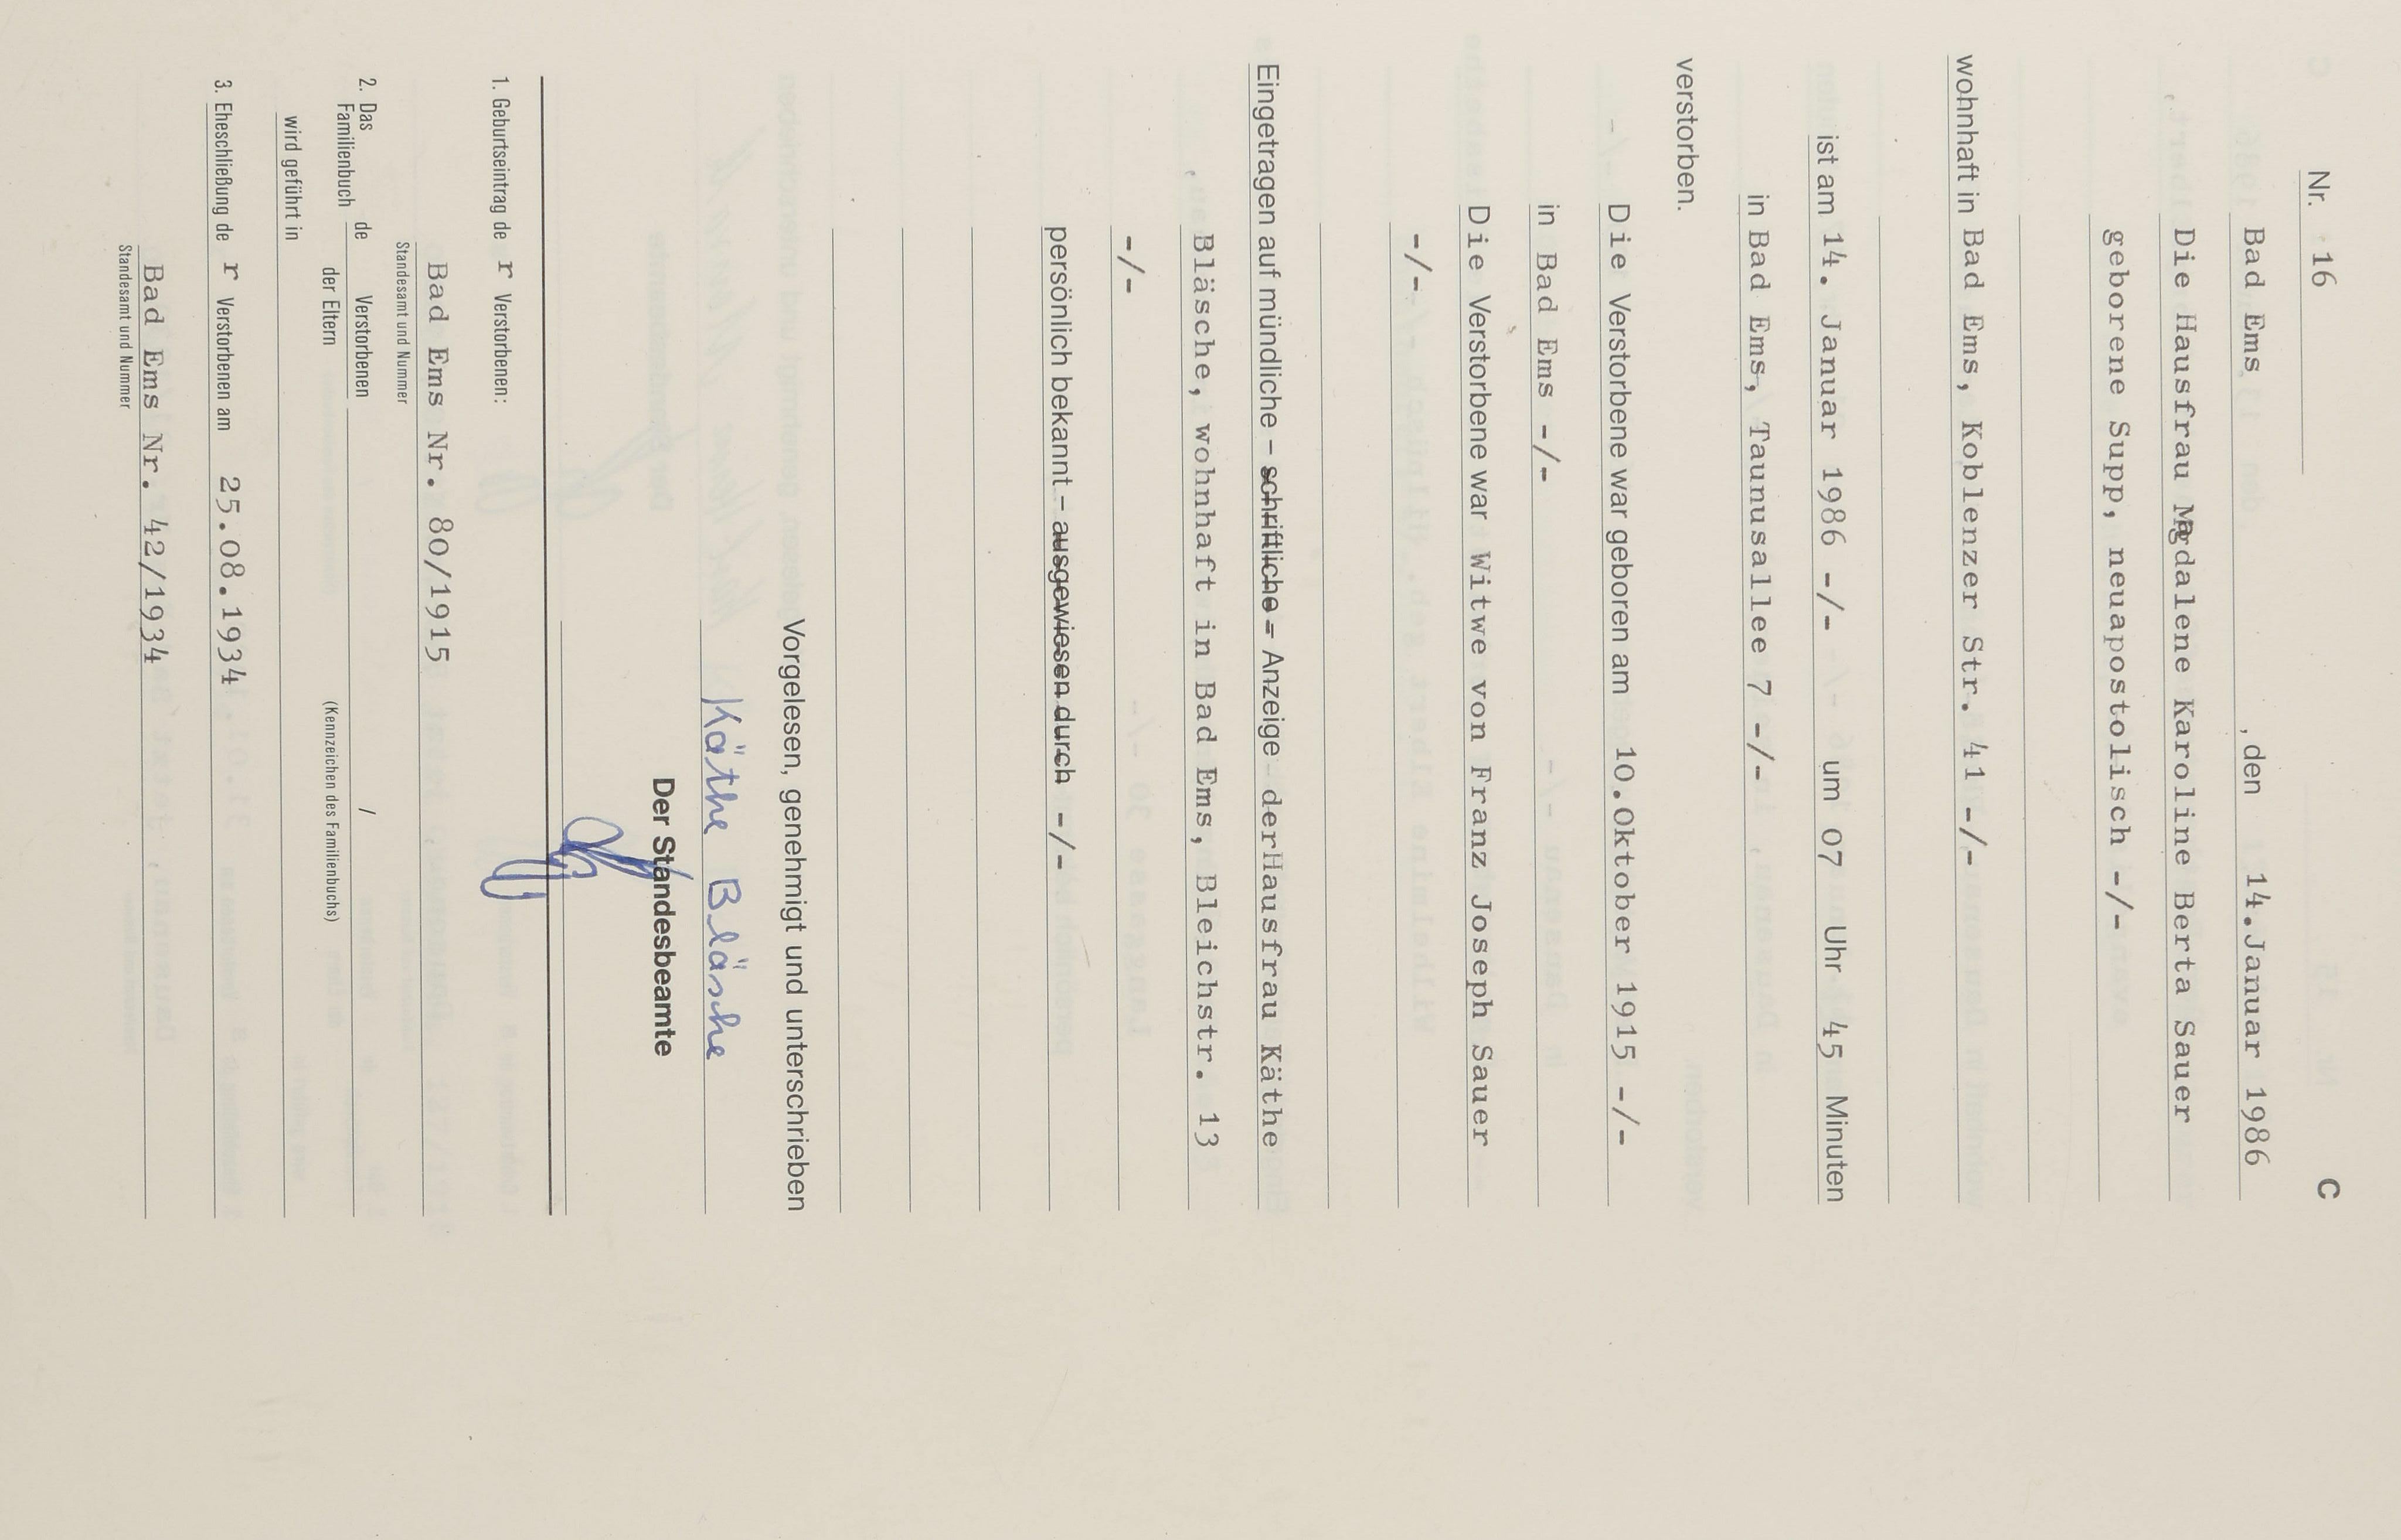 Nr. 16 C
Bad Ems , den 14.Januar 1986
Die Hausfrau Magdalene Karoline Berta Sauer
geborene Supp, neuapostolisch -/-
wohnhaft in Bad Ems, Koblenzer Str. 41 -/-
ist am 14. Januar 1986 -/- um 07 Uhr 45 Minuten
in Bad Ems, Taunusallee 7 -/-
verstorben.
Die Verstorbene war geboren am 10.Oktober 1915 -/-
in Bad Ems -/-
Die Verstorbene war Witwe von Franz Joseph Sauer
-/-
Eingetragen auf mündliche – schriftliche – Anzeige der Hausfrau Käthe
Bläsche, wohnhaft in Bad Ems, Bleichstr. 13
-/-
persönlich bekannt – ausgewiesen durch -/-
Vorgelesen, genehmigt und unterschrieben
Käthe Bläsche
Der Standesbeamte
1. Geburtseintrag de r Verstorbenen:
Bad Ems Nr. 80/1915
Standesamt und Nummer
2. Das Familienbuch de Verstorbenen /
der Eltern (Kennzeichen des Familienbuchs)
wird geführt in
3. Eheschließung de r Verstorbenen am 25.08.1934
Bad Ems Nr. 42/1934
Standesamt und Nummer